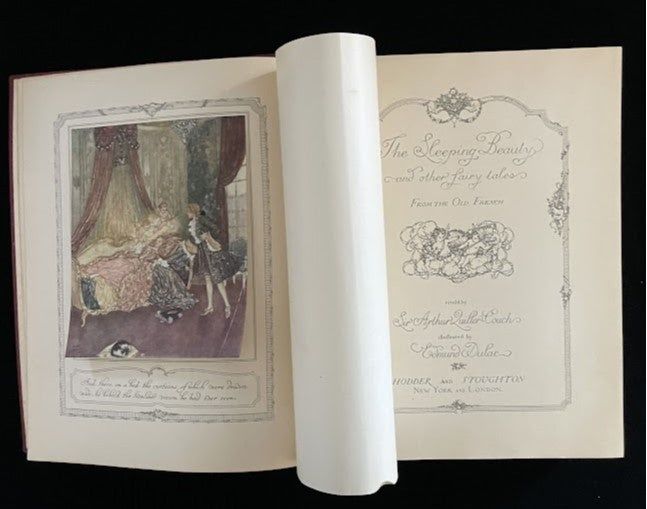 And there, on a bed the curtains of which were drawn
wide, he beheld the loveliest vision he had ever seen.
The Sleeping Beauty
and other fairy tales
FROM THE OLD FRENCH
retold by
Sir Arthur Quiller-Couch
illustrated by
Edmund Dulac
HODDER AND STOUGHTON
NEW YORK AND LONDON